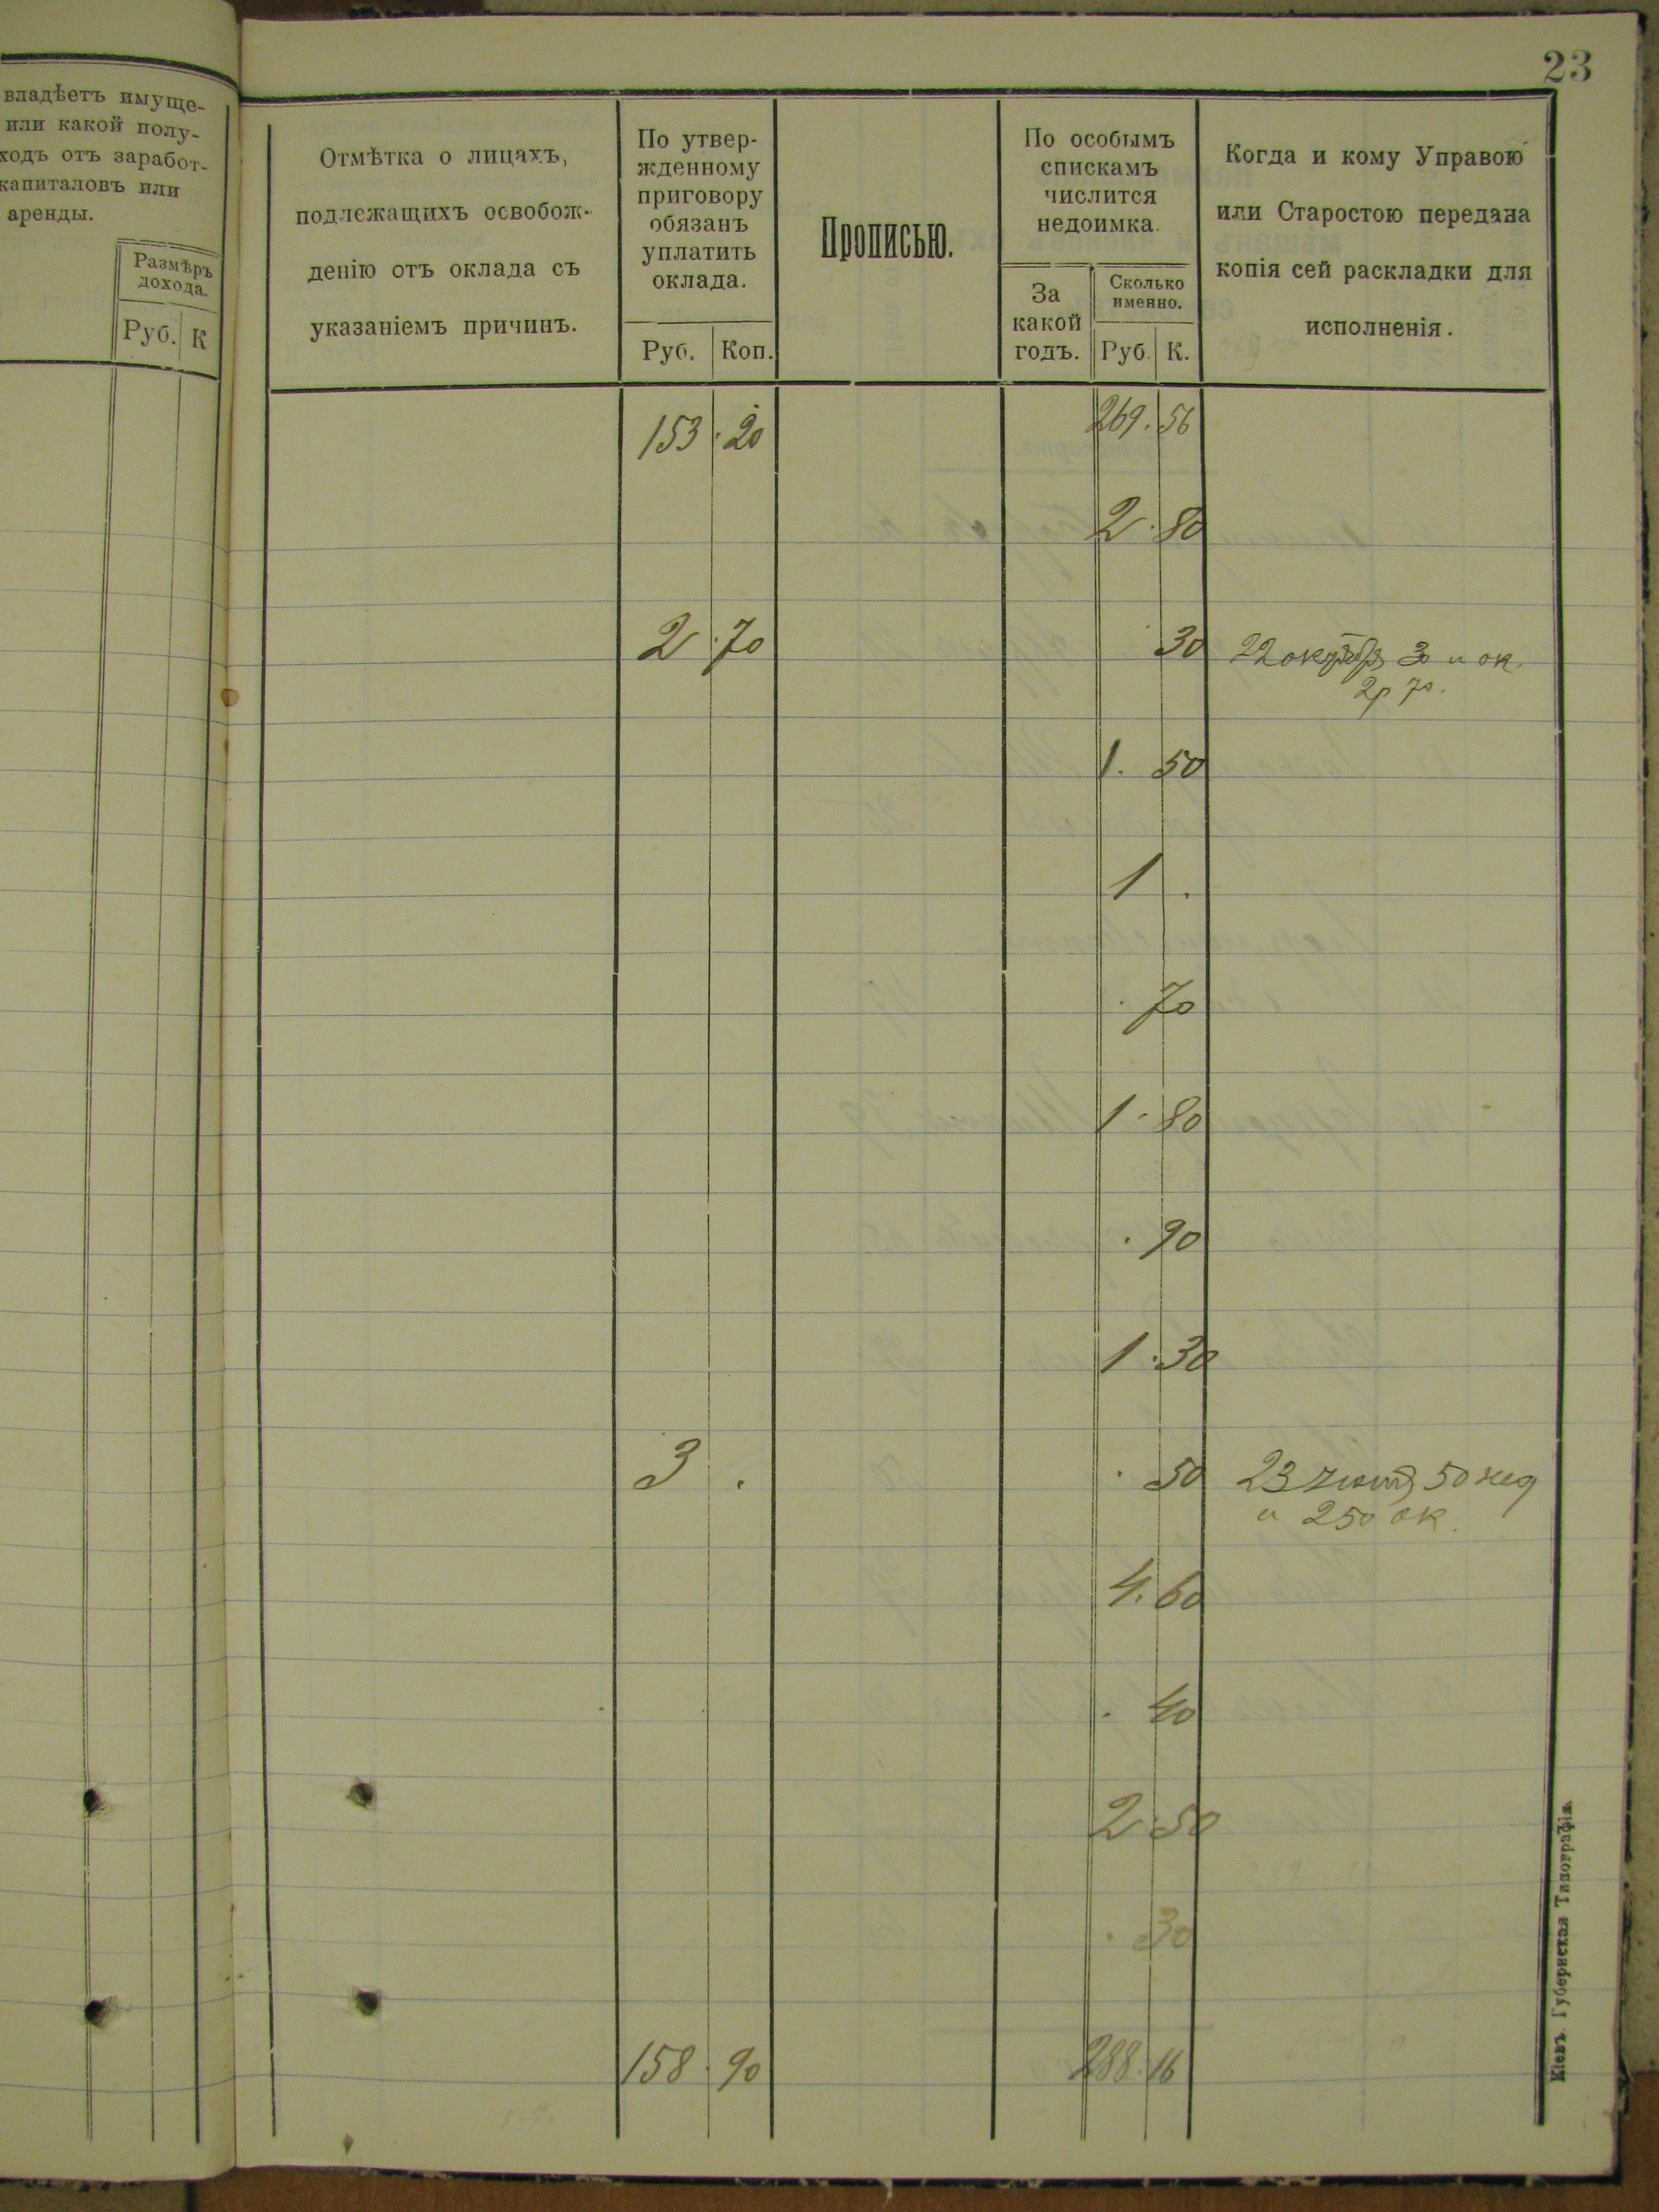 23
владѣетъ имуще-
или какой полу-
ходъ отъ заработ-
капиталовъ или
аренды.
Размѣръ
дохода.
Руб. К
Отмѣтка о лицахъ,
подлежащихъ освобож-
денію отъ оклада съ
указаніемъ причинъ.
По утвер-
жденному
приговору
обязанъ
уплатить
оклада.
Руб. Коп.
Прописью.
По особымъ
спискамъ
числится
недоимка.
За
какой
годъ.
Сколько
именно.
Руб. К.
Когда и кому Управою
или Старостою передана
копія сей раскладки для
исполненія.
153 . 20 269 . 56
2 . 80
2 . 70 30 22 30 и ок.
2р 70.
1. 50
1 .
. 70
1 . 80
. 90
1 . 30
3 . . 50 23 50 нед
и 250 ок.
4. 60
. 40
2 . 50
. 30
158 . 90 288 . 16
Кіевъ. Губернская Типографія.